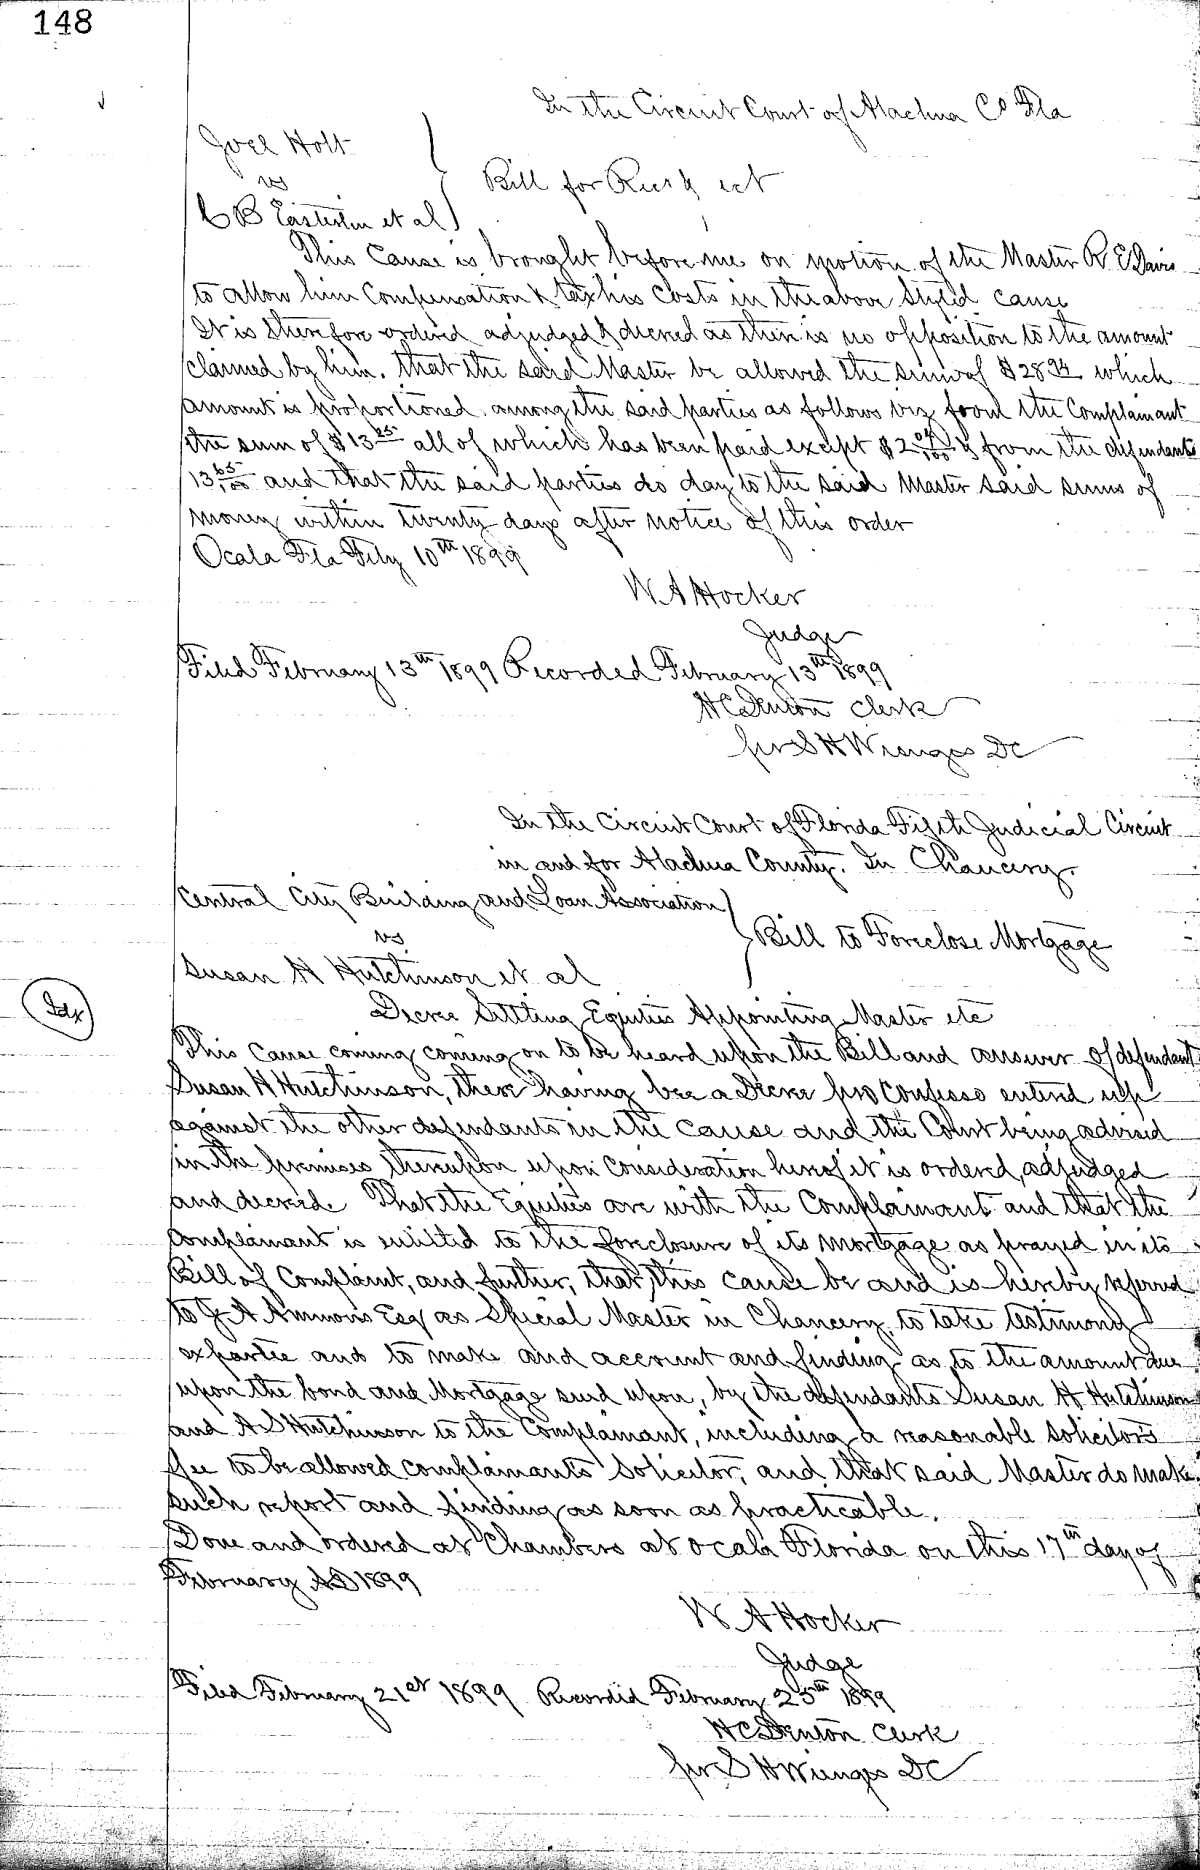 148
In the Circuit Court of Alachua Co Fla
Joel Holt
vs
Bill for
C B Easterlin et al
This Cause is brought before me on motion of the Master R E Davis
to allow him Compensation & tax his Costs in the above Styled cause
It is therefore ordered adjudged & decreed as there is no opposition to the amount
claimed by him. that the said Master be allowed the sum of $28 which
amount is proportioned among the said parties as follows viz from the Complainant
the sum of $13 25 all of which has been paid except $2 04/100 & from the defendants
13 65/100 and that the said parties do day to the said Master said sums of
money within twenty days after notice of this order
Ocala Fla Feby 10th 1899
W A Hocker
Judge
Filed February 13th 1899 Recorded February 13th 1899
H C Denton Clerk
per S H Wienges DC
In the Circuit Court of Florida Fifth Judicial Circuit
in and for Alachua County. In Chancery.
Central City Building and Loan Association
vs
Bill to Foreclose Mortgage
Susan H Hutchinson et al
Idx
Decree Settling Equities Appointing Master etc
This cause coming coming on to be heard upon the Bill and answer of defendant
Susan H Hutchinson, there having bee a Decree pro Confesso entered up
against the other defendants in the cause and the Court being advised
in the premises thereupon upon consideration hereof it is ordered, adjudged
and decreed. That the Equities are with the Complainant and that the
Complainant is entitled to the foreclosure of its mortgage as prayed in its
Bill of Complaint, and further, that this cause be and is hereby referred
to J A Ammons Esq as Special Master in Chancery to take testimony
exparte and to make and account and finding as to the amount due
upon the bond and Mortgage sued upon, by the defendants Susan H Hutchinson
and A S Hutchinson to the Complainant, including a reasonable solicitors
fee to be allowed complainants Solicitor, and that said Master do make
such report and finding as soon as practicable.
Done and ordered at Chambers at Ocala Florida on this 17th day of
February AD 1899
W A Hocker
Judge
Filed February 21st 1899 Recorded February 25th 1899
H C Denton Clerk
per S H Wienges DC